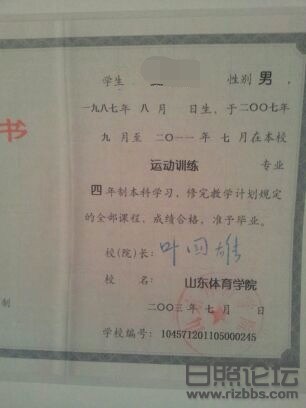 书
学生 性别 男，
一九八七年 八 月 日生，于二〇〇七年
九 月至 二〇一一年 七 月在本校
运动训练 专业
四 年制本科学习，修完教学计划规定
的全部课程，成绩合格，准予毕业。
校（院）长：
校 名： 山东体育学院
二〇〇三 年 七 月 日
制
学校编号：104571201105000245
日照论坛
www.rizbbs.com